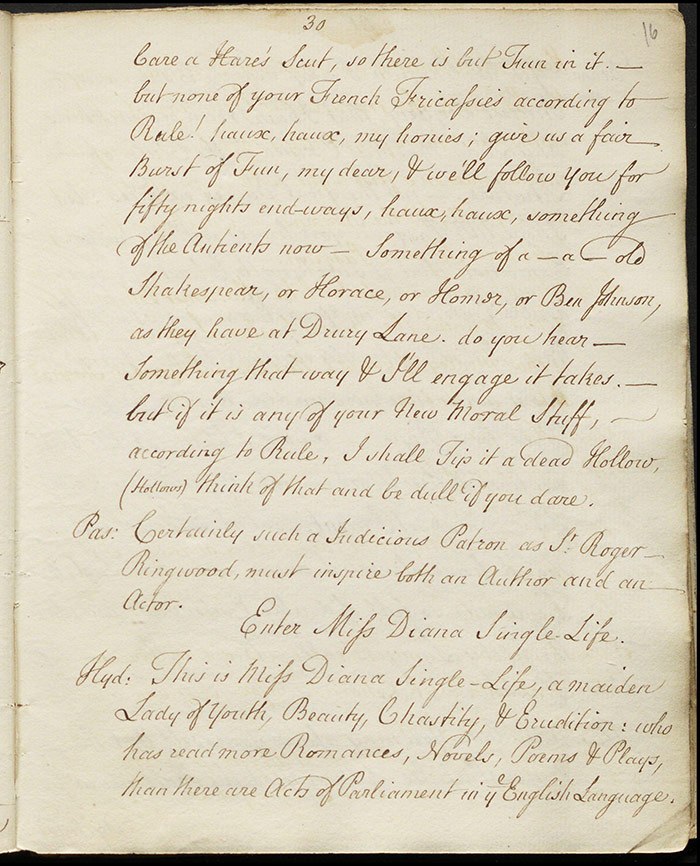 30
16
Care a Hare's Scut, so there is but Fun in it. —
but none of your French Fricassies according to
Rule! haux, haux, my honies; give us a fair
Burst of Fun, my dear, & we'll follow you for
fifty nights end-ways, haux, haux, something
of the Antients now — Something of a — a — old
Shakespear, or Horace, or Homer, or Ben Johnson,
as they have at Drury Lane. do you hear —
Something that way & I'll engage it takes. —
but if it is any of your New Moral Stuff, —
according to Rule, I shall Tip it a dead Hollow,
(Hollows) think of that and be dull if you dare.
Pas: Certainly such a Judicious Patron as Sr. Roger
Ringwood, must inspire both an Author and an
Actor.
Enter Miss Diana Single-Life.
Hyd: This is Miss Diana Single-Life, a maiden
Lady of Youth, Beauty, Chastity, & Erudition: who
has read more Romances, Novels, Poems & Plays,
than there are Acts of Parliament in ye English Language.